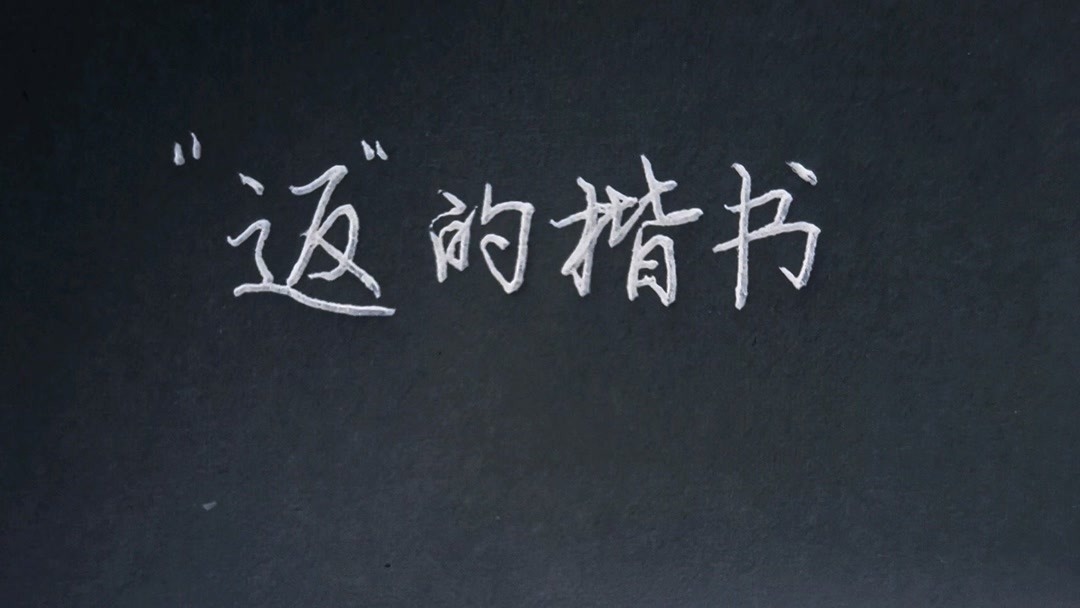 "返"的楷书